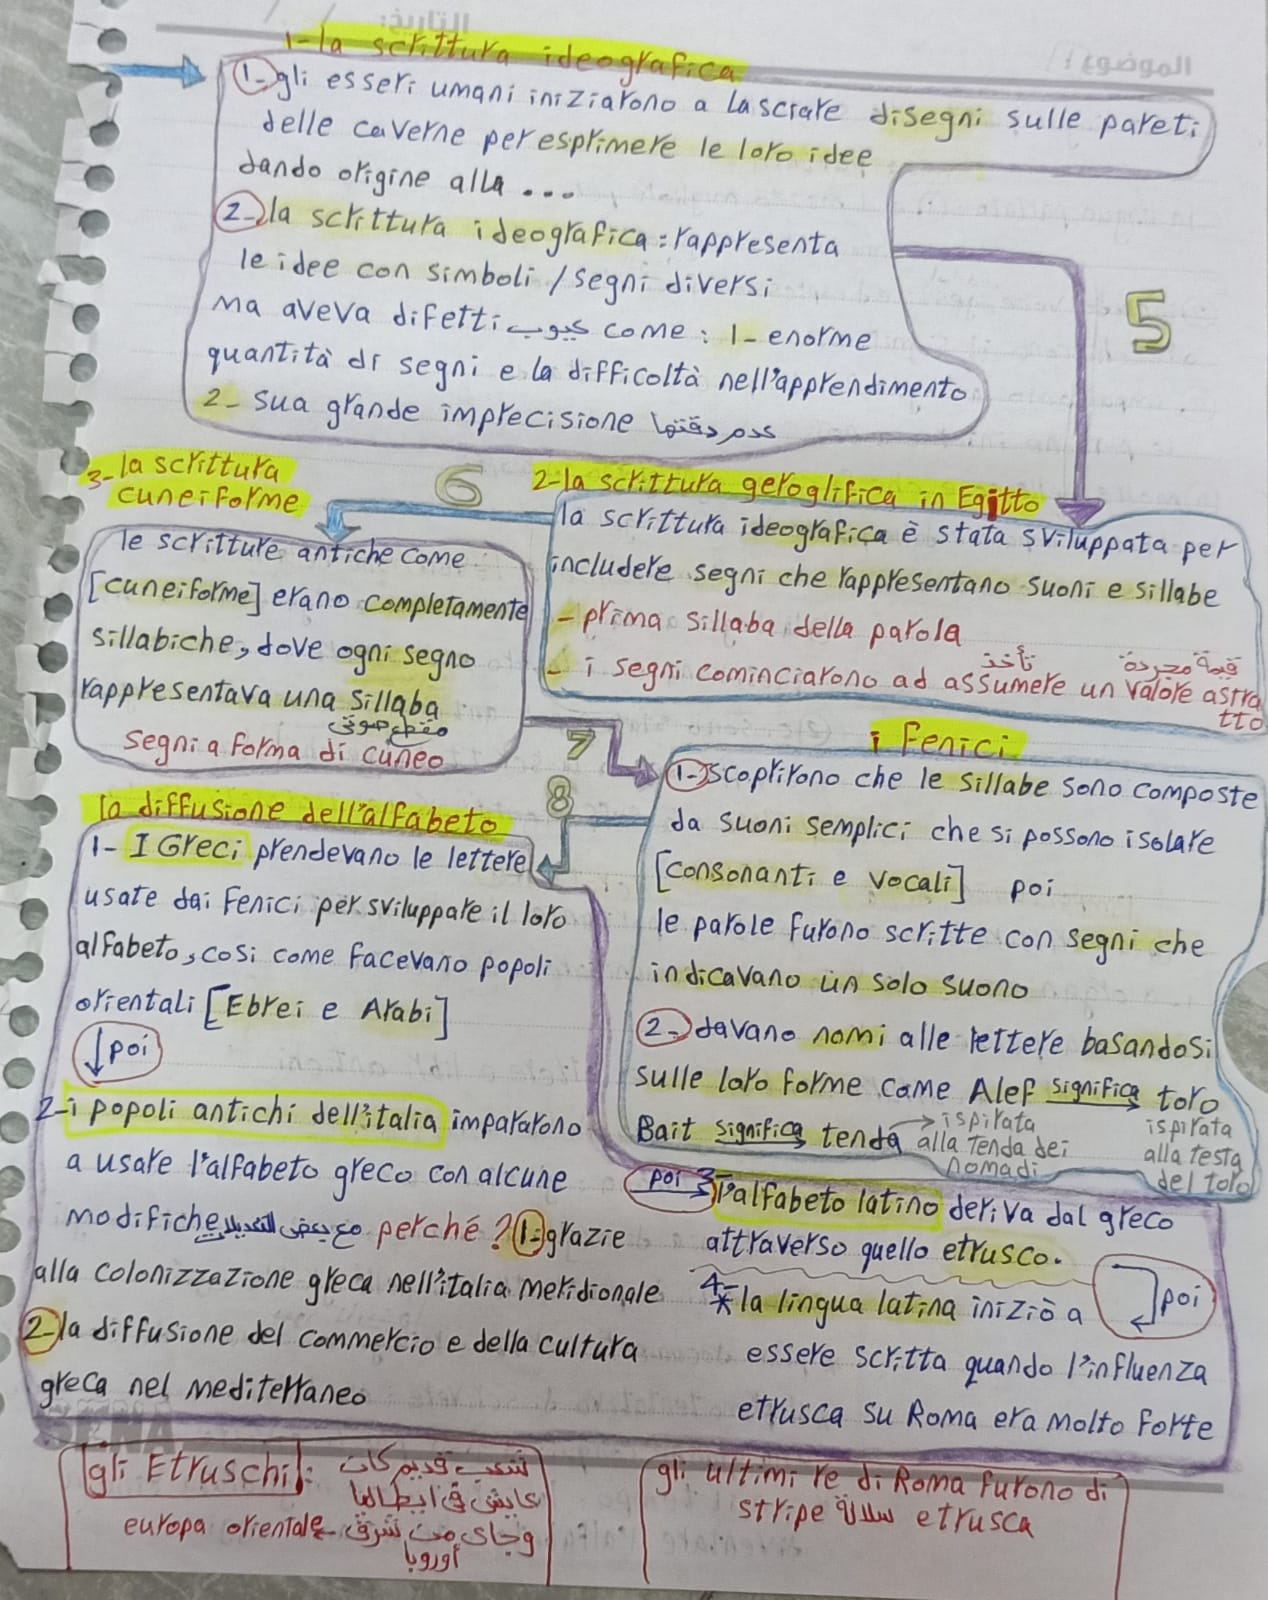 التاريخ:
الموضوع:
1-la scrittura ideografica
1- gli esseri umani iniziarono a lasciare disegni sulle pareti
delle caverne per esprimere le loro idee
dando origine alla ...
2- la scrittura ideografica: rappresenta
le idee con simboli / segni diversi
ma aveva difetti عيوب come: 1- enorme
quantità di segni e la difficoltà nell'apprendimento
2- sua grande imprecisione عدم دقتها
5
2-la scrittura geroglifica in Egitto
la scrittura ideografica è stata sviluppata per
includere segni che rappresentano suoni e sillabe
- prima sillaba della parola
تأخذ قيمة مجردة
- i segni cominciarono ad assumere un valore astra
tto
6
3- la scrittura
cuneiforme
le scritture antiche come
[cuneiforme] erano completamente
sillabiche, dove ogni segno
rappresentava una sillaba
مقطع صوتي
segni a forma di cuneo
7
i Fenici
1- scoprirono che le sillabe sono composte
da suoni semplici che si possono isolare
[consonanti e vocali] poi
le parole furono scritte con segni che
indicavano un solo suono
2- davano nomi alle lettere basandosi
sulle loro forme come Alef significa toro
ispirata
alla testa
del toro
Bait significa tenda ispirata
alla tenda dei
nomadi
8
la diffusione dell'alfabeto
1- I Greci prendevano le lettere
usate dai Fenici per sviluppare il loro
alfabeto, così come facevano popoli
orientali [Ebrei e Arabi]
poi
2-i popoli antichi dell'italia impararono
a usare l'alfabeto greco con alcune
modifiche مع بعض التعديلات perché? 1- grazie
alla colonizzazione greca nell'italia meridionale
2- la diffusione del commercio e della cultura
greca nel mediterraneo
poi 3- l'alfabeto latino deriva dal greco
attraverso quello etrusco.
poi
4- * la lingua latina iniziò a
essere scritta quando l'influenza
etrusca su Roma era molto forte
gli Etruschi: شعب قديم كان
عايش في ايطاليا
europa orientale وجاي من شرق
أوروبا
gli ultimi re di Roma furono di
stripe سلالة etrusca